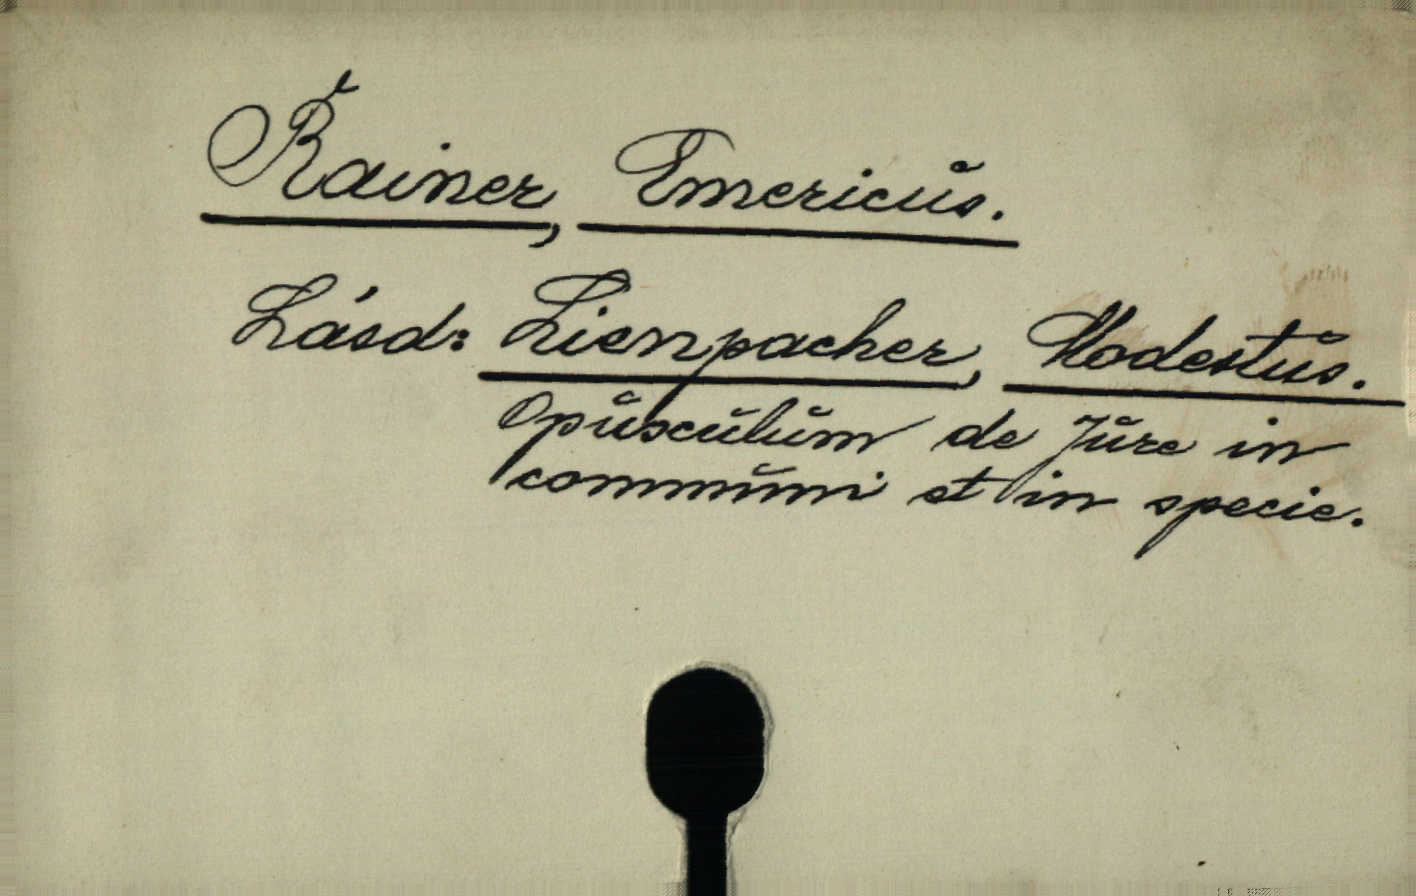 Rainer, Emericus.
Lásd: Lienpacher, Modestus.
Opusculum de Jure in
communi et in specie.